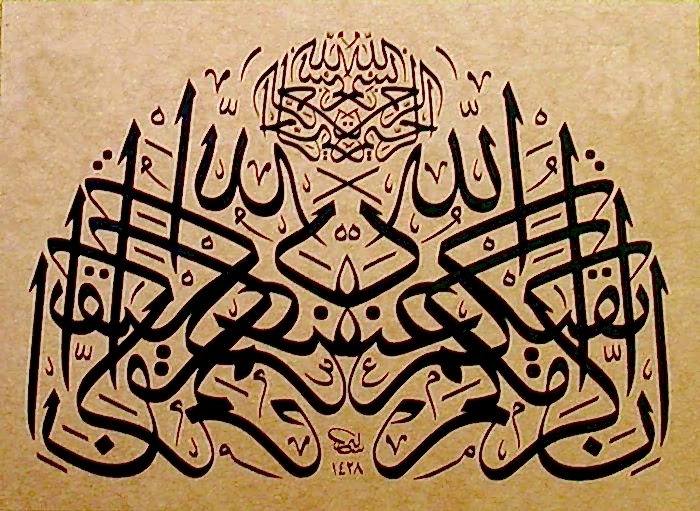 بسم الله الرحمن الرحيم
إن أكرمكم عند الله أتقاكم
١٤٢٨